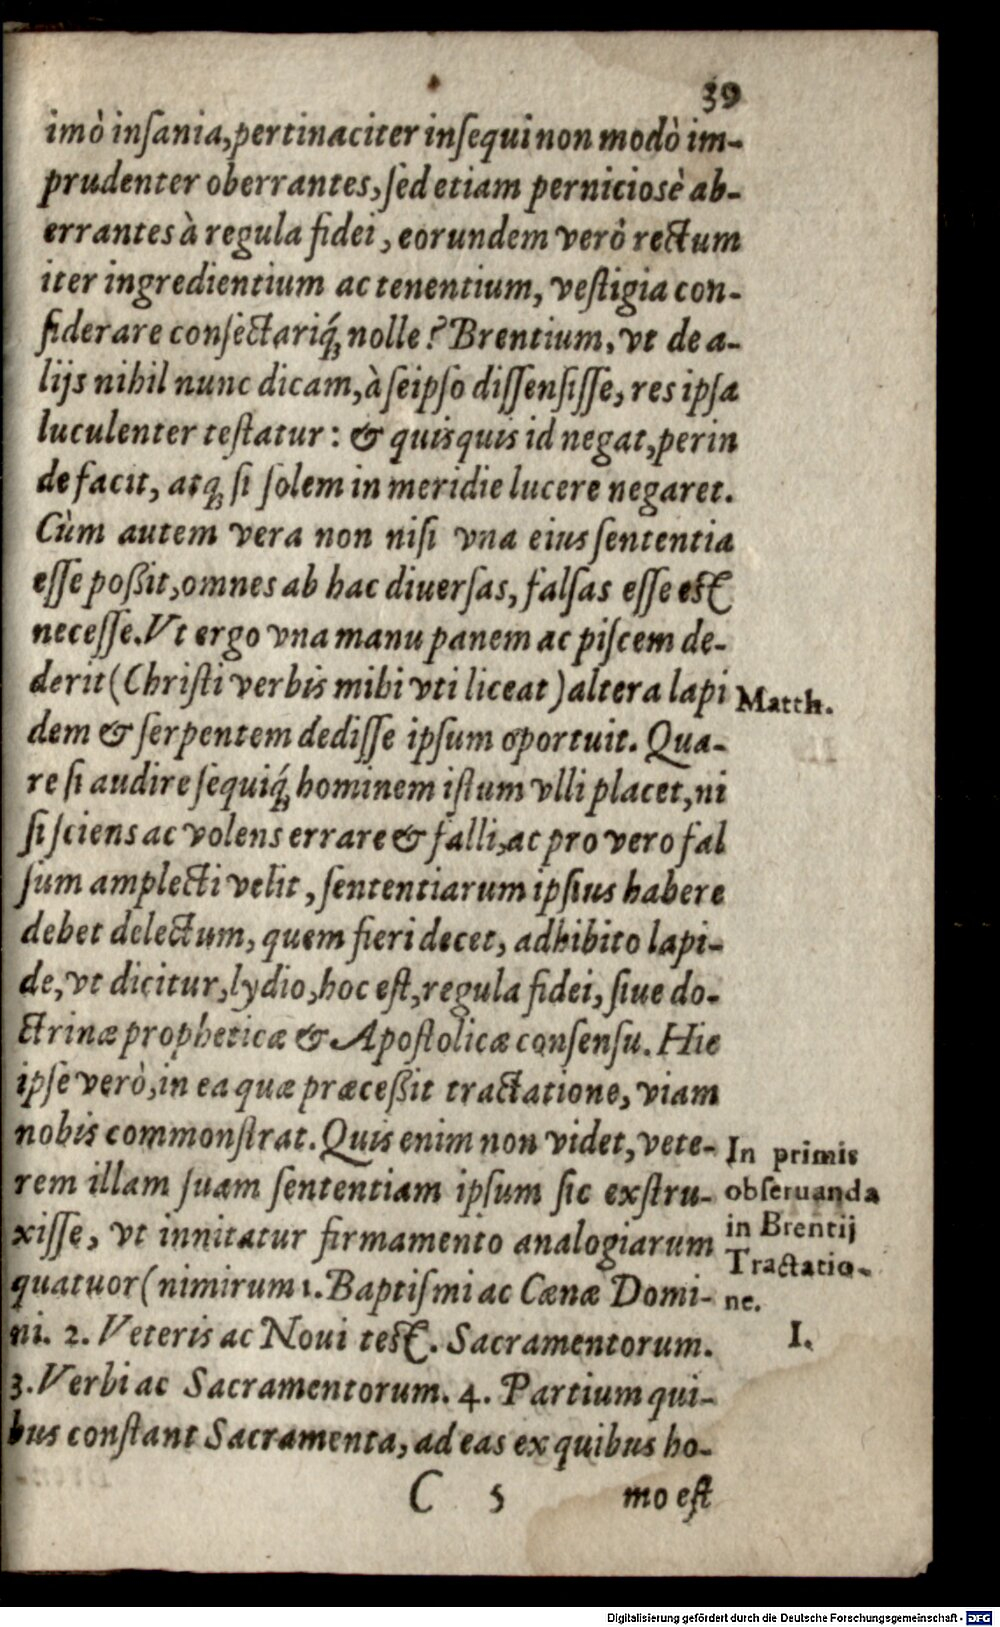 39
imò inſania, pertinaciter inſequi non modò im-
prudenter oberrantes, ſed etiam pernicioſè ab-
errantes à regula fidei, eorundem verò rectum
iter ingredientium ac tenentium, veſtigia con-
ſiderare conſectariq́; nolle? Brentium, vt de a-
lijs nihil nunc dicam, à ſeipſo diſſenſiſſe, res ipſa
luculenter teſtatur: & quisquis id negat, perin
de facit, atq; ſi ſolem in meridie lucere negaret.
Cùm autem vera non niſi vna eius ſententia
eſſe poßit, omnes ab hac diuerſas, falſas eſſe eſt
neceſſe. Vt ergo vna manu panem ac piſcem de-
derit (Chriſti verbis mihi vti liceat) altera lapi
Matth.
dem & ſerpentem dediſſe ipſum oportuit. Qua-
re ſi audire ſequiq́; hominem iſtum vlli placet, ni
ſi ſciens ac volens errare & falli, ac pro vero fal
ſum amplecti velit, ſententiarum ipſius habere
debet delectum, quem fieri decet, adhibito lapi-
de, vt dicitur, lydio, hoc eſt, regula fidei, ſiue do-
ctrinæ propheticæ & Apoſtolicæ conſenſu. Hic
ipſe verò, in ea quæ præceßit tractatione, viam
nobis commonſtrat. Quis enim non videt, vete-
rem illam ſuam ſententiam ipſum ſic exſtru-
xiſſe, vt innitatur firmamento analogiarum
quatuor (nimirum 1. Baptiſmi ac Cænæ Domi-
ni. 2. Veteris ac Noui teſt. Sacramentorum.
3. Verbi ac Sacramentorum. 4. Partium qui-
bus conſtant Sacramenta, ad eas ex quibus ho-
In primis
obſeruanda
in Brentij
Tractatio-
ne.
I.
C 5 mo eſt
Digitalisierung gefördert durch die Deutsche Forschungsgemeinschaft - DFG